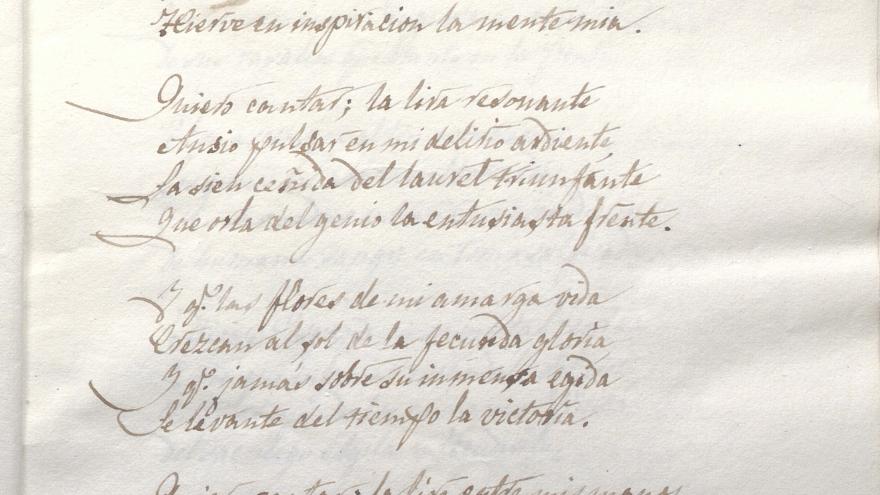 Hierve en inspiracion la mente mia.
Quiero cantar; la lira resonante
Ansio pulsar en mi delirio ardiente
La sien ceñida del laurel triunfante
Que orla del genio la entusiasta frente.
Y q.e las flores de mi amarga vida
Crezcan al sol de la fecunda gloria
Y q.e jamás sobre su inmensa egida
Se levante del tiempo la victoria.
Quiero cantar; la lira entre mis manos